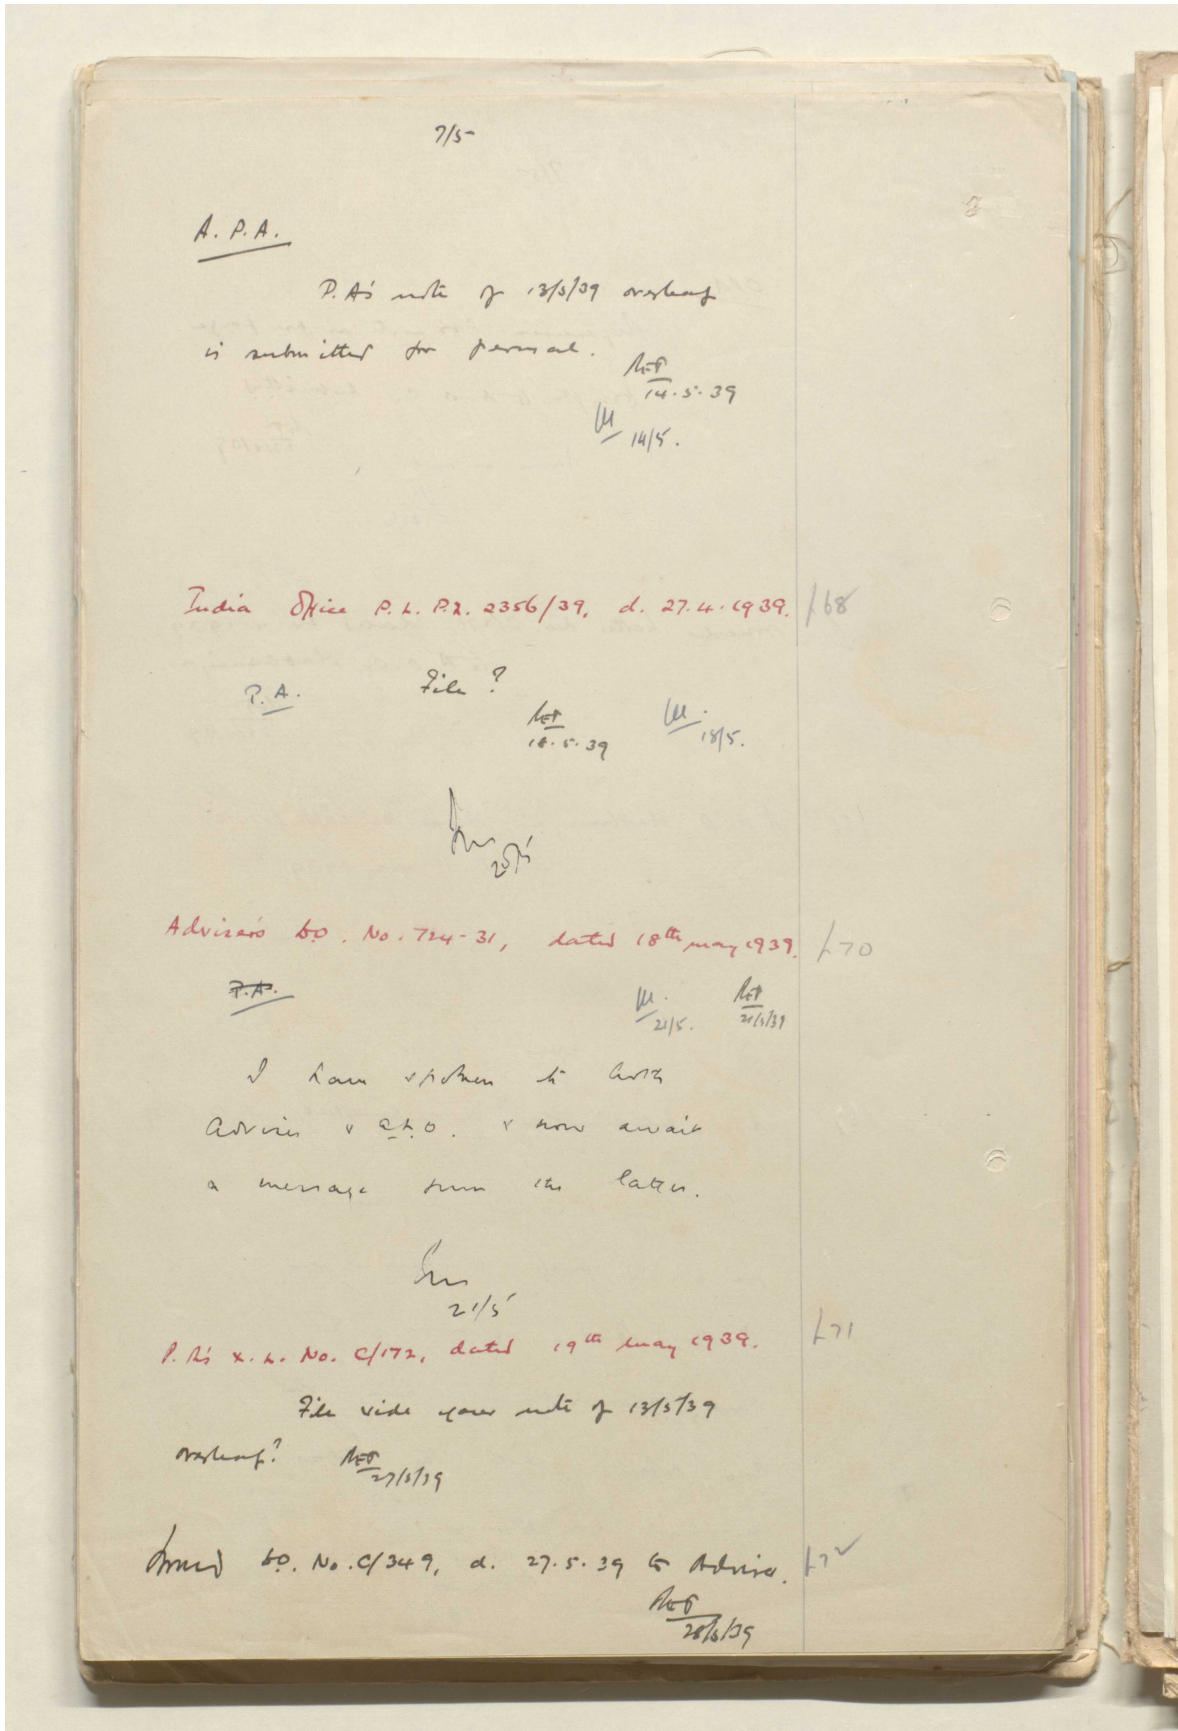 7/5
A. P. A.
P.A's note of 13/5/39 overleaf
is submitted for perusal.
14.5.39
14/5.
India Office P.L. P.Z. 2356/39, d. 27.4.1939. /68
P.A. File ?
18.5.39 18/5.
20/5
Adviser's D.O. No. 724-31, dated 18th May 1939. /70
P.A.
21/5. 21/5/39
I have spoken to both
Adviser & C.L.O. & now await
a message from the latter.
21/5
/71
P.A's X.L. No. C/172, dated 19th May 1939.
File vide your note of 13/5/39
overleaf?
27/5/39
Issued D.O. No. C/349, d. 27.5.39 to Adviser. /72
28/5/39